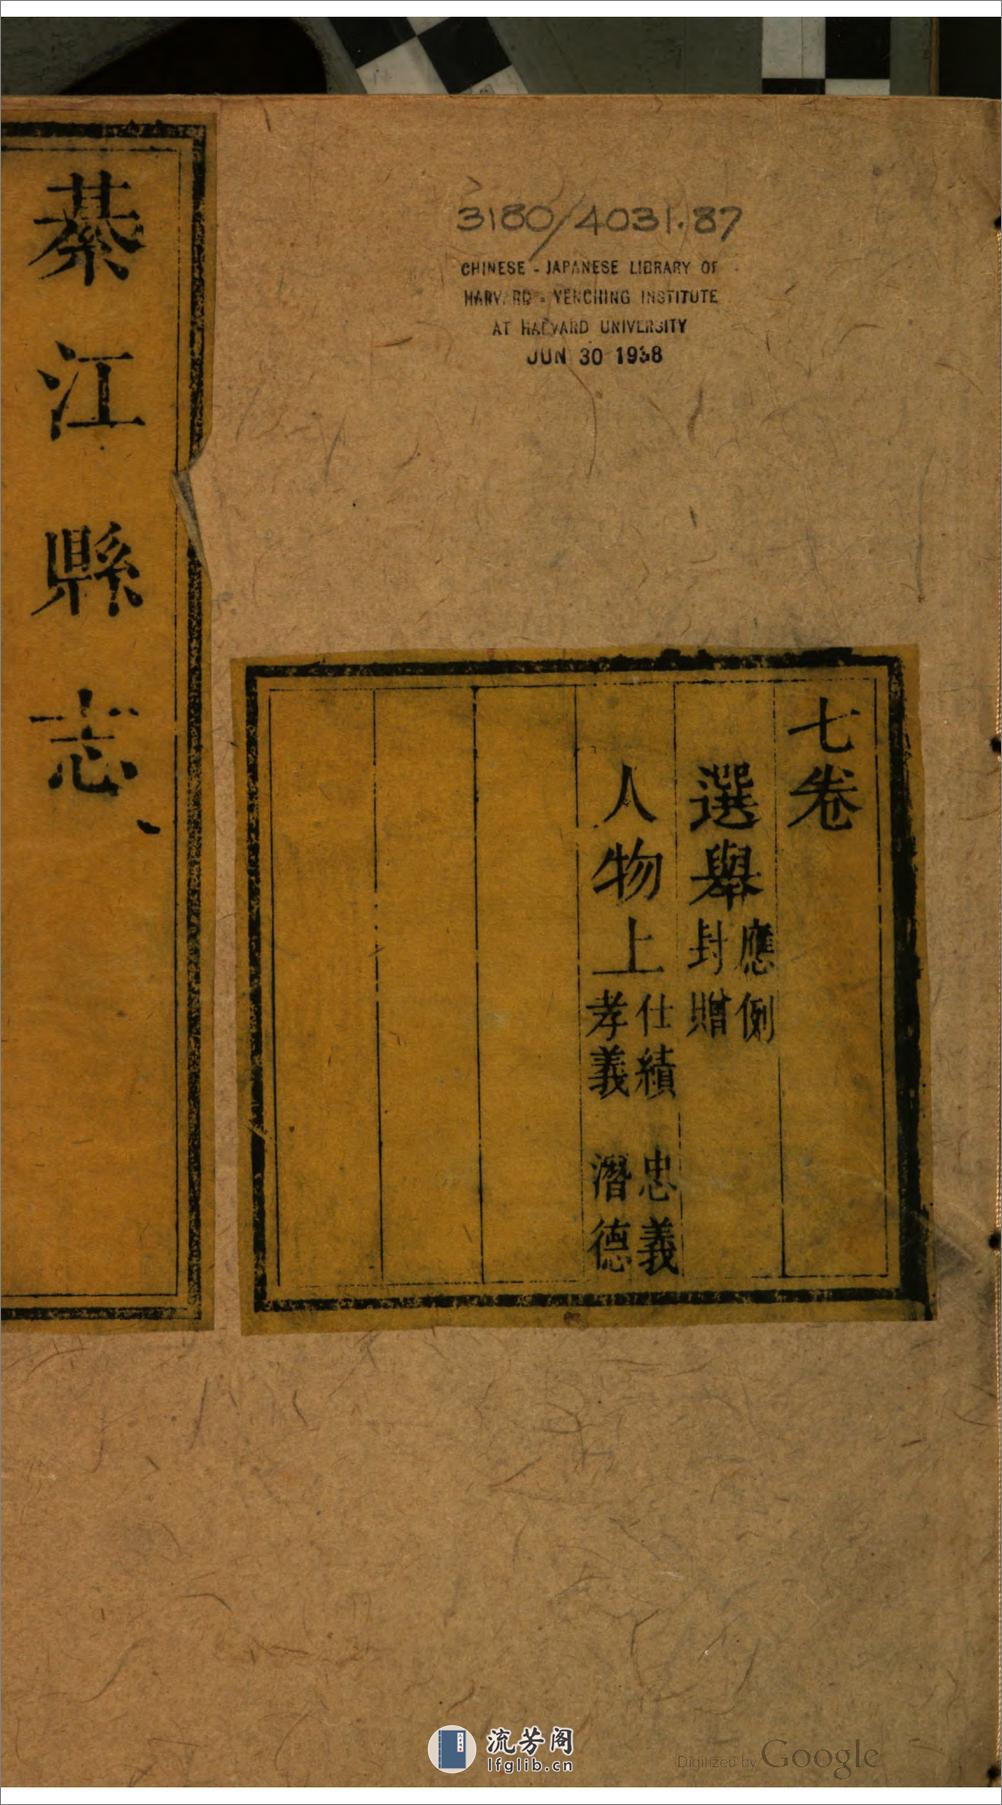 綦江縣志
3180/4031.87
CHINESE - JAPANESE LIBRARY OF
HARVARD - YENCHING INSTITUTE
AT HARVARD UNIVERSITY
JUN 30 1938
七卷
選舉 應例 封贈
人物上 仕績 忠義 孝義 潛德
流芳阁
lfglib.cn
Digitized by Google